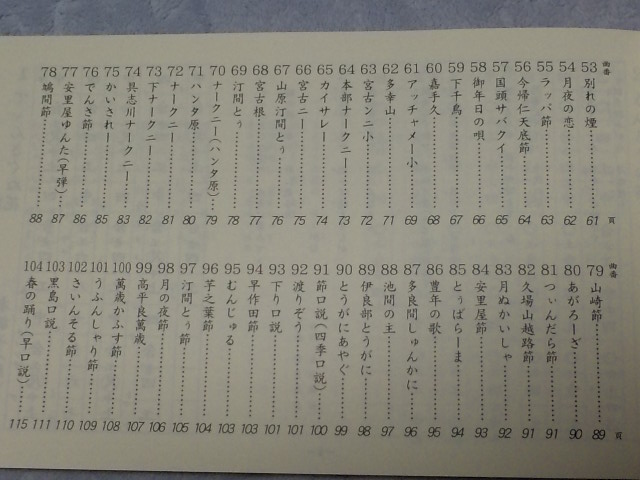 曲番 頁
53 別れの煙 61
54 月夜の恋 62
55 ラッパ節 63
56 今帰仁天底節 64
57 国頭サバクイ 65
58 御年日の唄 66
59 下千鳥 67
60 嘉手久 68
61 アッチャメー小 69
62 多幸山 71
63 宮古ンニ小 72
64 本部ナークニー 73
65 カイサレー 74
66 宮古ニー 75
67 山原汀間とぅ 76
68 宮古根 77
69 汀間とぅ 78
70 ナークニー(ハンタ原) 79
71 ハンタ原 80
72 ナークニー 81
73 下ナークニー 82
74 具志川ナークニー 83
75 かいされー 85
76 でんさ節 86
77 安里屋ゆんた(早弾) 87
78 鳩間節 88
曲番 頁
79 山崎節 89
80 あがろーざ 90
81 つぃんだら節 91
82 久場山越路節 91
83 月ぬかいしゃ 92
84 安里屋節 93
85 とぅばらーま 94
86 豊年の歌 95
87 多良間しゅんかに 96
88 池間の主 97
89 伊良部とうがに 98
90 とうがにあやぐ 99
91 節口説(四季口説) 100
92 渡りぞう 101
93 下り口説 101
94 早作田節 103
95 むんじゅる 103
96 芋之葉節 104
97 汀間とぅ節 105
98 月の夜節 106
99 高平良萬歳 107
100 萬歳かふす節 108
101 うふんしゃり節 109
102 さいんそる節 110
103 黒島口説 111
104 春の踊り(早口説) 115